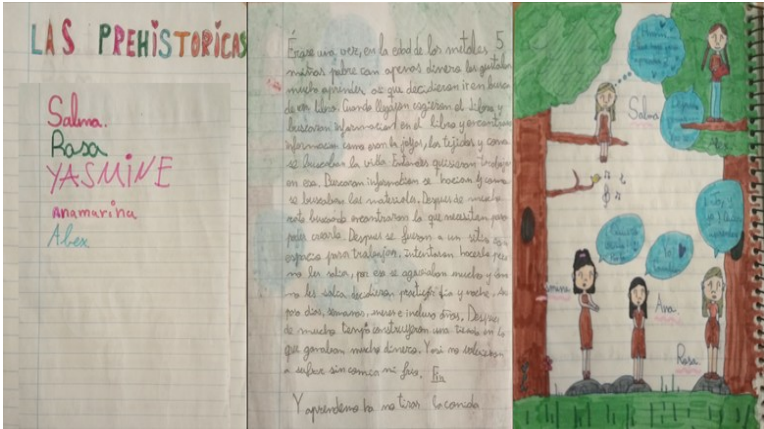 LAS PREHISTORICAS
Salma.
Rosa
YASMINE
Anamarina
Abex
Érase una vez, en la edad de los metales 5
niñas pobre con apenas dinero les gustaba
mucho aprender así que decidieron ir en busca
de un libro. Cuando llegaron cogieron el libro y
buscaron information en el libro y encontraron
informacion como eran la joyas, los tejidos y como
se buscaban la vida. Entonces quisieron trabajar
en eso. Buscaron information se hacian y como
se buscaban los materiales. Después de mucho
rato buscando encontraron lo que necesitan para
poder crearlo. Despues se fueron a un sitio con
espacio para trabajar, intentaron hacerlo pero
no les salia, por eso se agoviaban mucho y como
no les salia decidieron practicar dia y noche,
paso dias, semanas, meses e incluso años. Después
de mucho tiempo construyeron una tienda en la
que ganaban mucho dinero. Y así no volvieron
a sufrir sin comida ni frio. Fin
Y aprendemos ha no tirar la comida
Salma
Ana
Rosa